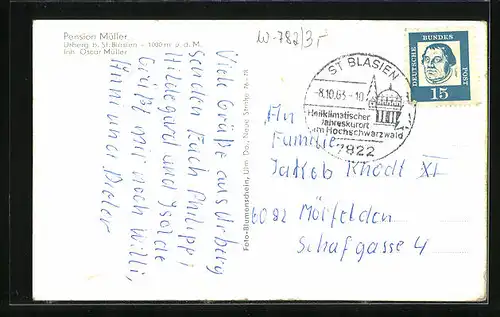 Pension Müller
Urberg b. St. Blasien - 1000 m ü. d. M.
Inh. Oscar Müller
W-782/3r
Viele Grüße aus Urberg
senden Euch Philippi
Hildegard und Isolde
Grüßt mir noch Willi,
Anni und Dieter
Foto-Blumenschein, Ulm Do., Neue Straße
ST. BLASIEN
-8.10.63-10
Heilklimatischer
Jahreskurort
im Hochschwarzwald
7822
DEUTSCHE
BUNDES
POST
15
An
Familie
Jakob Knodt XI
6082 Mörfelden
Schafgasse 4